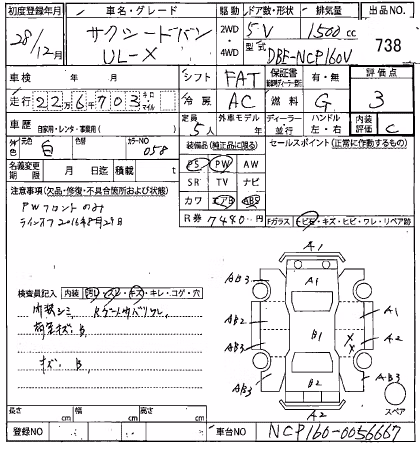 初度登録年月 車名・グレード 駆動 ドア数・形状 排気量 出品NO.
28/12月 サクシードバン UL-X 2WD 4WD 5V 1500cc 738
型式 DBE-NCP160V
車検 年 月 シフト FAT 保証書 有・無 評価点
走行 22万6千703 キロ マイル 冷房 AC 燃料 G 3
車歴 自家用・レンタ・事業用( ) 定員 5人 外車モデル ディーラー 並行 ハンドル 左・右 内装評価 C
元色 白 色替 カラーNO 058 装備品(純正品に限る) セールスポイント(正常に作動するもの)
名義変更期限 月 日迄 積載量 t PS PW AW
注意事項(欠品・修復・不具合箇所および状態) SR TV ナビ
PWフロントのみ カワ エアB ABS
ラインオフ2016年8月29日 R券 7480 Fガラス トビ石・キズ・ヒビ・ワレ・リペア跡
検査員記入 内装 汚レ・スレ・キズ・キレ・コゲ・穴
内装シミ Rゲート内バリワレ
キズ B
A1
AB3 A1 AB3
AB2 A1
B1 X X
AB3 A2
AB3 B2 AB3
A2
スペア
長さ cm 幅 cm 高さ cm
登録NO 車台NO NCP160-0056667